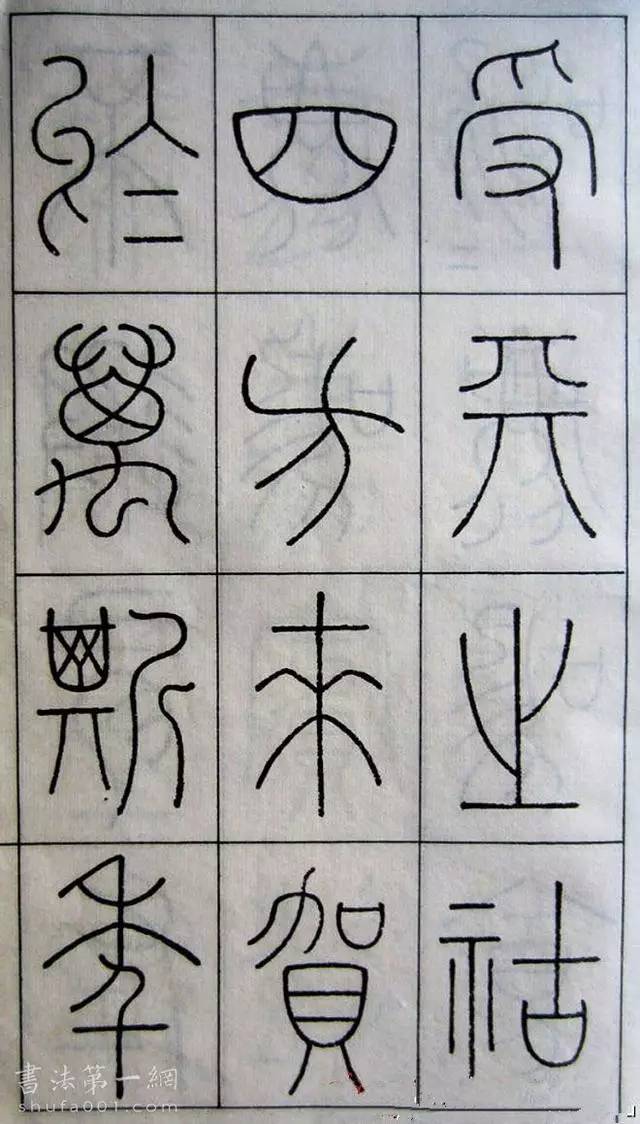 受天之祜
四方來賀
於萬斯年
書法第一網
shufa001.com